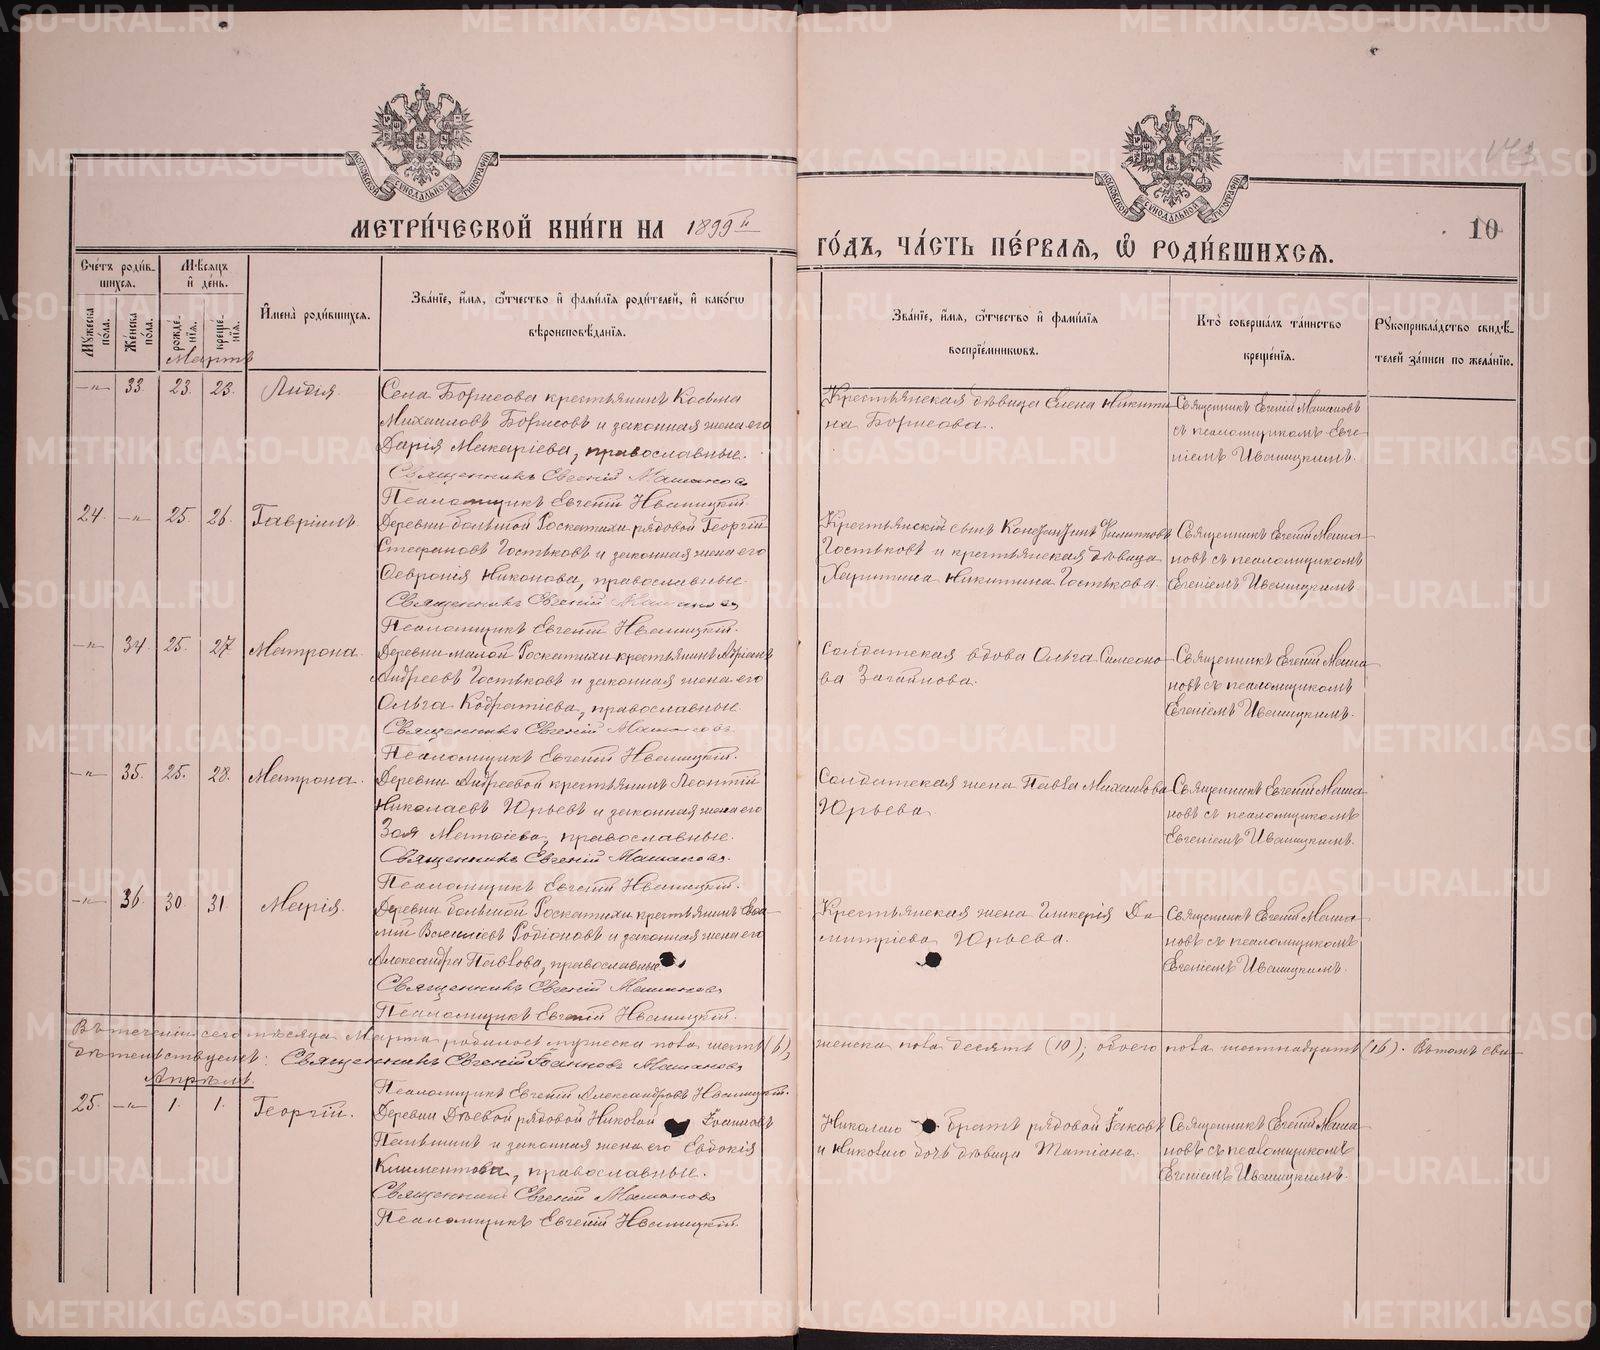 МЕТРИ́ЧЕСКОЙ КНИ́ГИ НА 1899й
ГО́ДЪ, ЧА́СТЬ ПЕ́РВАЯ, Ѽ РОДИ́ВШИХСЯ.
10
МОСКОВСКОЙ СѴНОДАЛЬНОЙ ТИПОГРАФІИ
МОСКОВСКОЙ СѴНОДАЛЬНОЙ ТИПОГРАФІИ
Сче́тъ роди́в-
шихся.
Мѣ́сяцъ
и҆ де́нь.
Мꙋ́жеска по́ла.
Же́нска по́ла.
рожде́-
нїѧ.
креще́-
нїѧ.
И҆мена̀ роди́вшихся.
Зва́нїе, и҆́мѧ, ѻ҆́тчество и҆ фами́лїѧ роди́телей, и҆ како́гѡ
вѣроисповѣ́данїѧ.
Зва́нїе, и҆́мѧ, ѻ҆́тчество и҆ фами́лїѧ
воспрїе́мникѡвъ.
Кто̀ соверша́лъ та́инство
креще́нїѧ.
Рꙋкоприкла́дство свидѣ́-
телей за́писи по жела́нїю.
Мартъ
—"— 33. 23. 23. Лидія.
Села Борисова крестьянинъ Косьма
Михаиловъ Борисовъ и законная жена его
Дарія Макаріева, православные.
Священникъ Евгеній Машановъ
Псаломщикъ Евгеній Иваницкій.
Крестьянская дѣвица Елена Никити-
на Борисова.
Священникъ Евгеній Машановъ
съ псаломщикомъ Евге-
ніемъ Иваницкимъ.
24. —"— 25. 26. Гавріилъ.
Деревни большой Роскатихи рядовой Георгій
Стефановъ Гостьковъ и законная жена его
Февронія Никонова, православные.
Священникъ Евгеній Машановъ
Псаломщикъ Евгеній Иваницкій.
Крестьянскій сынъ Константинъ Филипповъ
Гостьковъ и крестьянская дѣвица
Харитина Никитина Гостькова.
Священникъ Евгеній Маша-
новъ съ псаломщикомъ
Евгеніемъ Иваницкимъ.
—"— 34. 25. 27. Матрона.
Деревни малой Роскатихи крестьянинъ Адріанъ
Андреевъ Гостьковъ и законная жена его
Ольга Кодратіева, православные.
Священникъ Евгеній Машановъ.
Псаломщикъ Евгеній Иваницкій.
Солдатская вдова Ольга Симеоно-
ва Загайнова.
Священникъ Евгеній Маша-
новъ съ псаломщикомъ
Евгеніемъ Иваницкимъ.
—"— 35. 25. 28. Матрона.
Деревни Андреевой крестьянинъ Леонтій
Николаевъ Юрьевъ и законная жена его
Зоя Матѳіева, православные.
Священникъ Евгеній Машановъ.
Псаломщикъ Евгеній Иваницкій.
Солдатская жена Павла Михаилова
Юрьева.
Священникъ Евгеній Маша-
новъ съ псаломщикомъ
Евгеніемъ Иваницкимъ.
—"— 36. 30. 31. Марія.
Деревни большой Роскатихи крестьянинъ Евѳи-
мій Василіевъ Родіоновъ и законная жена его
Александра Павлова, православные.
Священникъ Евгеній Машановъ
Псаломщикъ Евгеній Иваницкій.
Крестьянская жена Гликерія Ди-
митріева Юрьева.
Священникъ Евгеній Маша-
новъ съ псаломщикомъ
Евгеніемъ Иваницкимъ.
Въ теченіи сего мѣсяца Марта родилось мужеска пола шесть (6), женска пола десять (10), обоего пола шестнадцать (16). Въ томъ сви-
дѣтельствуемъ: Священникъ Евгеній Іоанновъ Машановъ
Псаломщикъ Евгеній Александровъ Иваницкій.
Апрѣль.
25. —"— 1. 1. Георгій.
Деревни Дѣевой рядовой Николай Іоанновъ
Паньшинъ и законная жена его Евдокія
Климентова, православные.
Священникъ Евгеній Машановъ
Псаломщикъ Евгеній Иваницкій.
Николаю братъ рядовой Іаковъ
и Николаю дочь дѣвица Татіана.
Священникъ Евгеній Маша-
новъ съ псаломщикомъ
Евгеніемъ Иваницкимъ.
METRIKI.GASO-URAL.RU